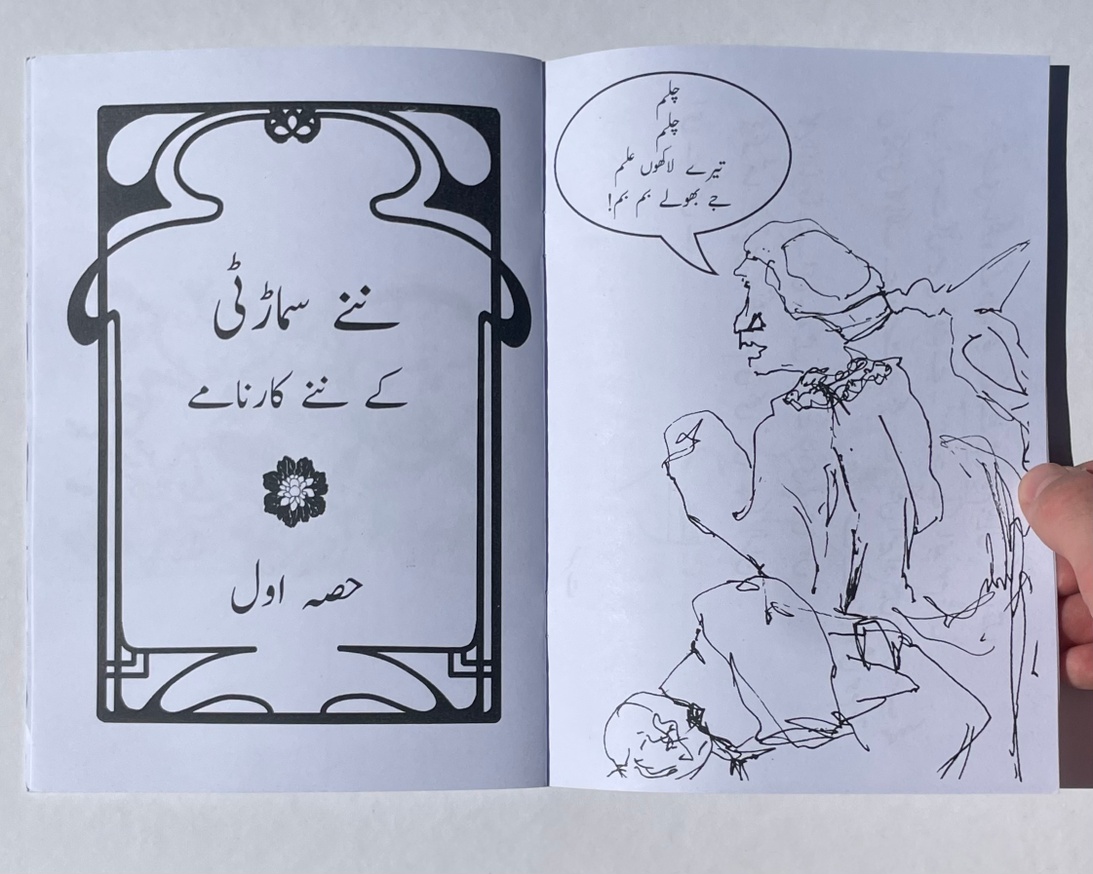 ننے سماڑٹی
کے ننے کارنامے
حصہ اول
چلم
چلم
تیرے لاکھوں علم
جے بھولے بم بم!